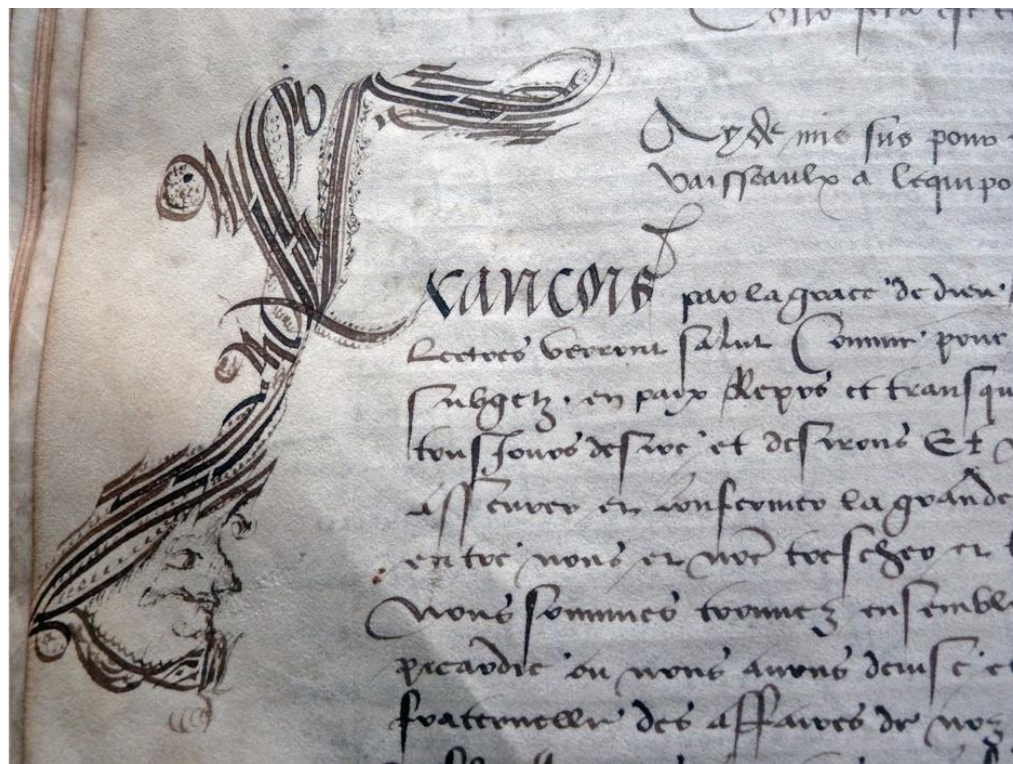 Ayde mis sus pour
vaisseaulx a lequipo
Francois par la grace de dieu
Lectres verront salut Comme pour
subgetz en paix Repos et transqu
tousJours desire et desirons Et
asseurer en confermer la grande
entre nous et nore trescher et
Nous sommes trouvez ensemble
picardie ou nous avons devise et
fraternelle des affaires de noz